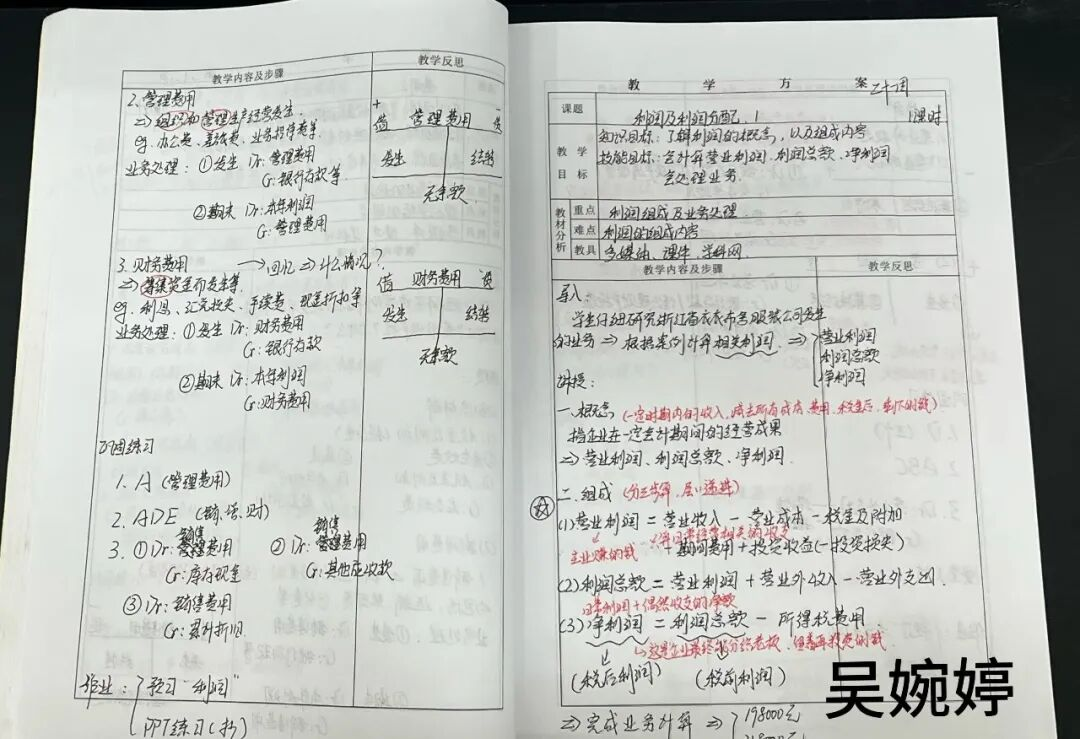 教学内容及步骤
教学反思
2. 管理费用
=> 组织和管理生产经营发生.
eg. 办公费、差旅费、业务招待费等
业务处理: ①发生 Dr: 管理费用
Cr: 银行存款等
②期末 Dr: 本年利润
Cr: 管理费用
+ -
借 管理费用 贷
发生 结转
无余额
3. 财务费用 → 回忆 => 什么情况?
=> 筹集资金而发生等
eg. 利息、汇兑损失、手续费、现金折扣等
业务处理: ①发生 Dr: 财务费用
Cr: 银行存款
②期末 Dr: 本年利润
Cr: 财务费用
借 财务费用 贷
发生 结转
无余额
巩固练习
1. A (管理费用)
2. ADE (销、增、财)
销售 销售
3. ①Dr: 管理费用 ②Dr: 管理费用
Cr: 库存现金 Cr: 其他应收款
③Dr: 销售费用
Cr: 累计折旧
作业: 预习“利润”
PPT练习(抄)
教学方案 二十一周
课题
利润及利润分配. 1
1课时
教学目标
知识目标: 了解利润的概念, 以及组成内容
技能目标: 会计算营业利润、利润总额、净利润
会处理业务.
教材分析
重点 利润组成及业务处理
难点 利润的组成内容
教具 多媒体、课件、学科网
教学内容及步骤
教学反思
导入:
学生仔细研究浙江省衣衣布舍服装公司发生
的业务 => 根据案例计算相关利润. => 营业利润
利润总额
净利润
讲授:
一. 概念 (一定时期内的收入, 减去所有成本、费用、税金后, 剩下的钱)
指企业在一定会计期间的经营成果
=> 营业利润、利润总额、净利润.
二. 组成 (分三步算, 层层递进)
(1) 营业利润 = 营业收入 - 营业成本 - 税金及附加
主业赚的钱 与日常经营相关的收支
- 期间费用 + 投资收益 (- 投资损失)
(2) 利润总额 = 营业利润 + 营业外收入 - 营业外支出.
日常利润 + 偶然收支的净额
(3) 净利润 = 利润总额 - 所得税费用
这是企业最终能分给老板、但留再投资的钱
(税后利润) (税前利润)
=> 完成业务计算 => 198000元
吴婉婷